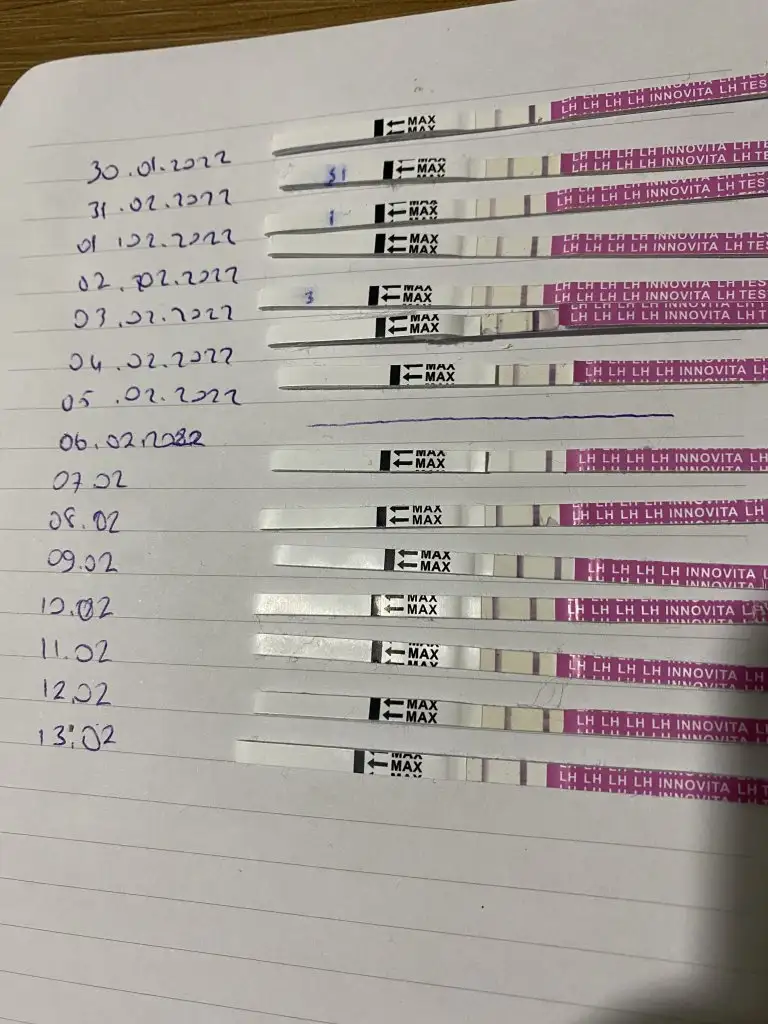 MAX
LH LH LH LH INNOVITA LH TES
30.01.2022
31
MAX
LH LH LH LH INNOVITA LH TE
31.02.2022
1
MAX
LH LH LH LH INNOVITA LH TES
01.02.2022
MAX
LH LH LH LH INNOVITA LH TES
02.02.2022
3
MAX
LH LH LH LH INNOVITA LH TES
03.02.2022
MAX
LH LH LH LH INNOVITA LH T
04.02.2022
MAX
LH LH LH LH INNOVITA LH
05.02.2022
06.02.2022
MAX
MAX
LH LH LH LH INNOVITA LH
07.02
MAX
MAX
LH LH LH LH INNOVITA LH
08.02
MAX
MAX
LH LH LH LH INNOVITA L
09.02
MAX
MAX
LH LH LH LH INNOVITA LH
10.02
MAX
LH LH LH LH INNOVITA LH
11.02
MAX
MAX
LH LH LH LH INNOVITA LH
12.02
MAX
LH LH LH LH INNOVITA LH T
13.02